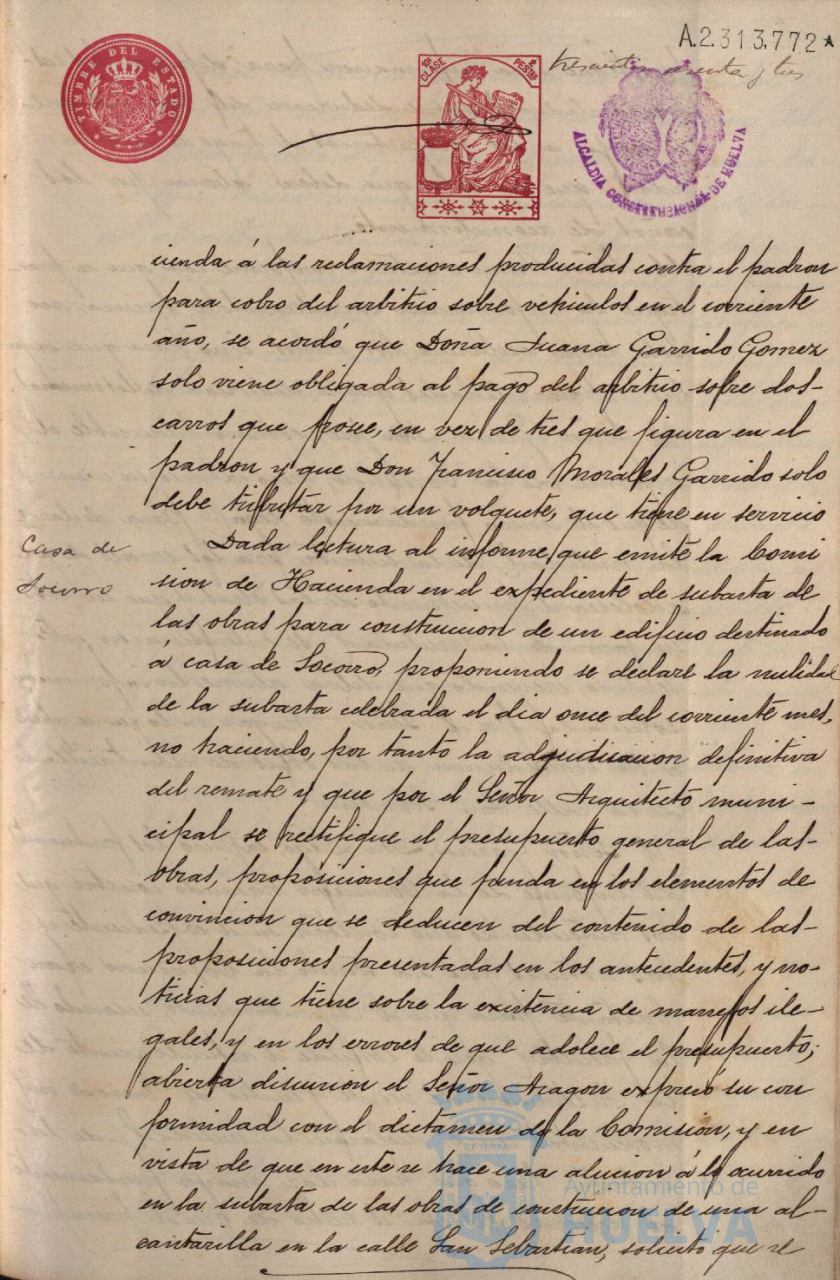 A.2.313.772*
TIMBRE DEL ESTADO
CLASE
PESETA
ALCALDIA CONSTITUCIONAL DE HUELVA
cienda á las reclamaciones producidas contra el padron
para cobro del arbitrio sobre vehiculos en el corriente
año, se acordó que Doña Juana Garrido Gomez
solo viene obligada al pago del arbitrio sobre dos-
carros que posee, en vez de tres que figura en el
padron y que Don Francisco Morales Garrido solo
debe tributar por un volquete, que tiene en servicio
Casa de
Socorro
Dada lectura al informe que emite la Comi
sion de Hacienda en el expediente de subasta de
las obras para construcion de un edificio destinado
á casa de Socorro, proponiendo se declare la nulidad
de la subasta celebrada el dia once del corriente mes,
no haciendo, por tanto la adjudicacion definitiva
del remate y que por el Señor Arquitecto muni-
cipal se rectifique el presupuesto general de las-
obras, proposiciones que funda en los elementos de
convincion que se deducen del contenido de las-
proposiciones presentadas en los antecedentes, y no-
ticias que tiene sobre la existencia de manejos ile-
gales, y en los errores de que adolece el presupuesto;
abierta discusion el Señor Aragon expresó su con
formidad con el dictamen de la Comision, y en
vista de que en este se hace una alucion á lo ocurrido
en la subasta de las obras de construcion de una al-
cantarilla en la calle San Sebastian, solicitó que se
Ayuntamiento de
HUELVA